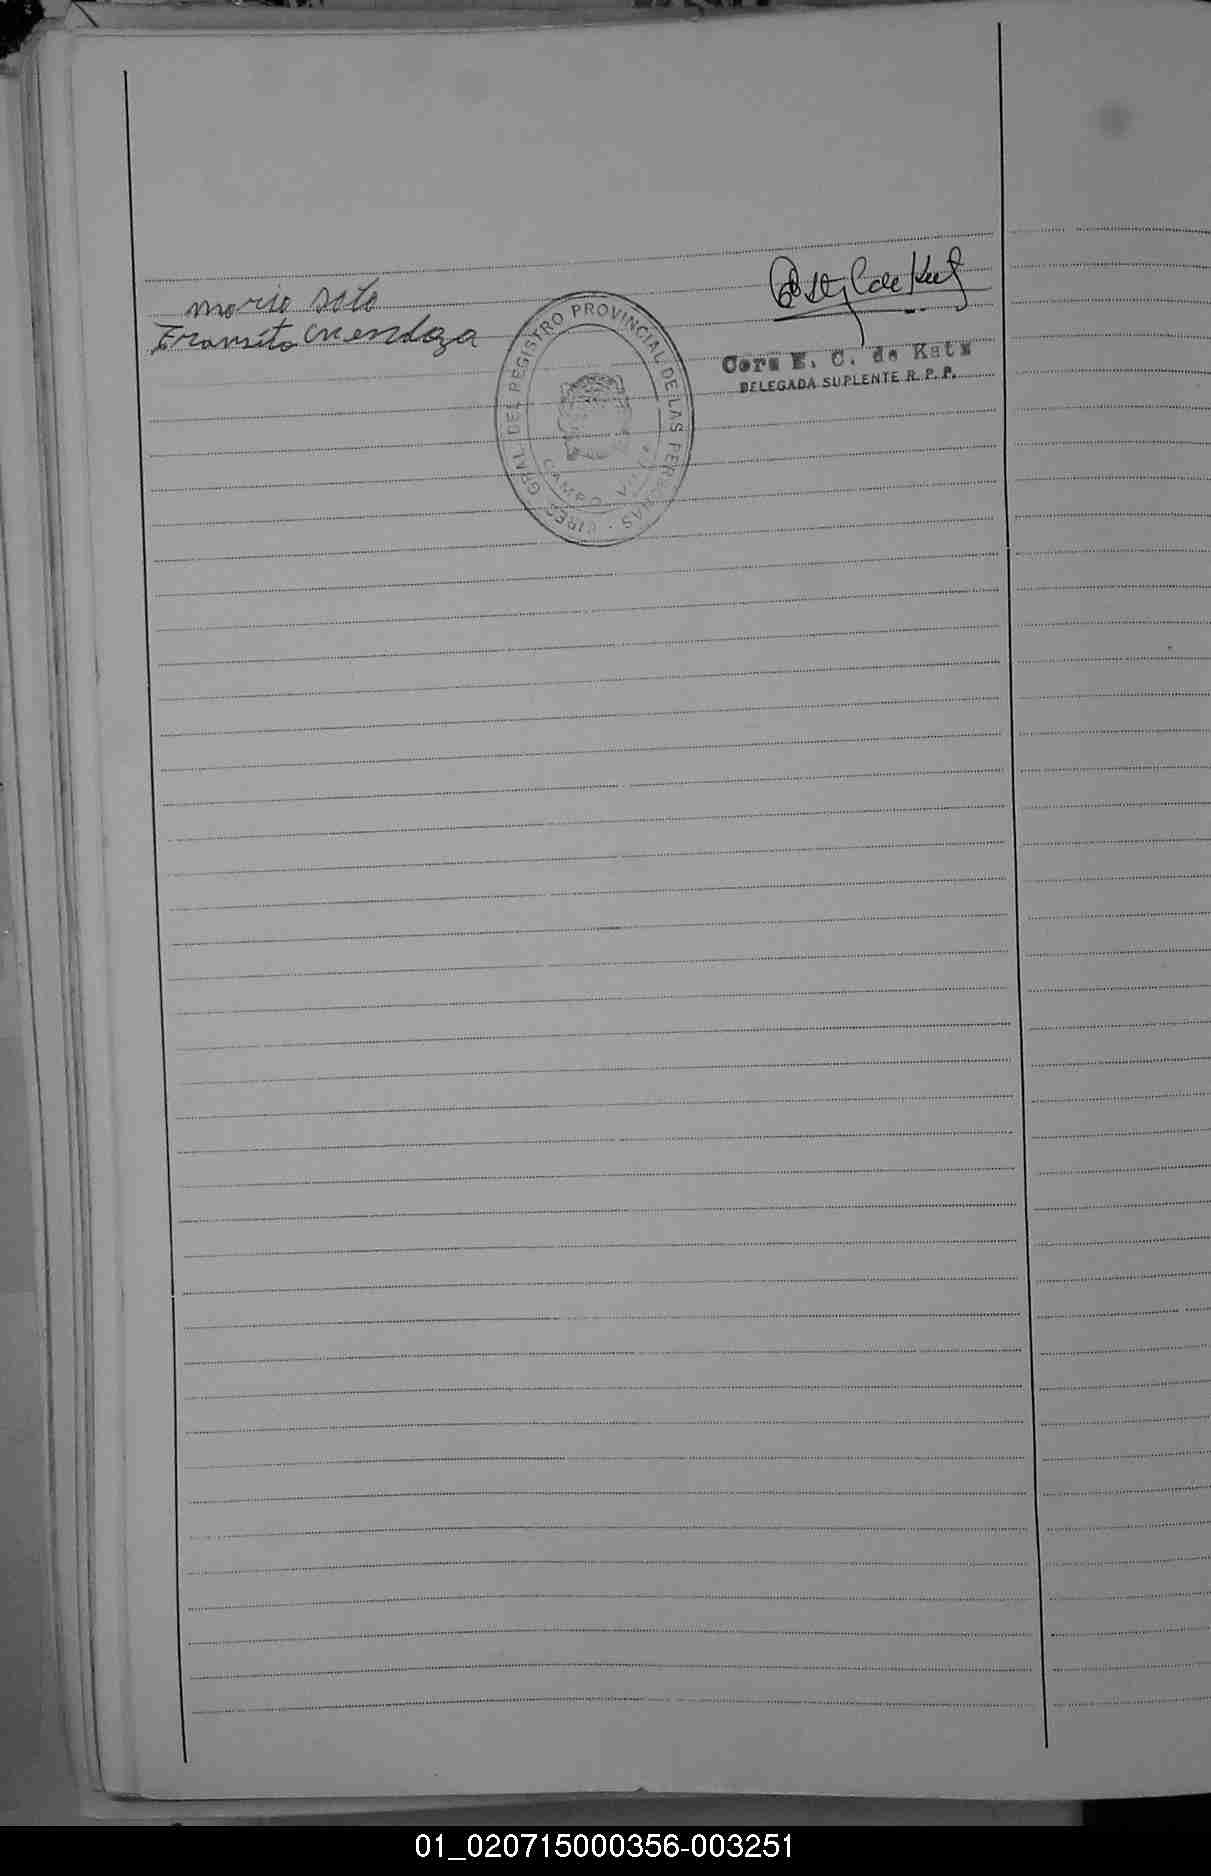 mario soto
Transito mendoza
DIREC. GRAL. DEL REGISTRO PROVINCIAL DE LAS PERSONAS
CAMPO
Cora E. C. de Katz
DELEGADA SUPLENTE R. P. P.
01_020715000356-003251